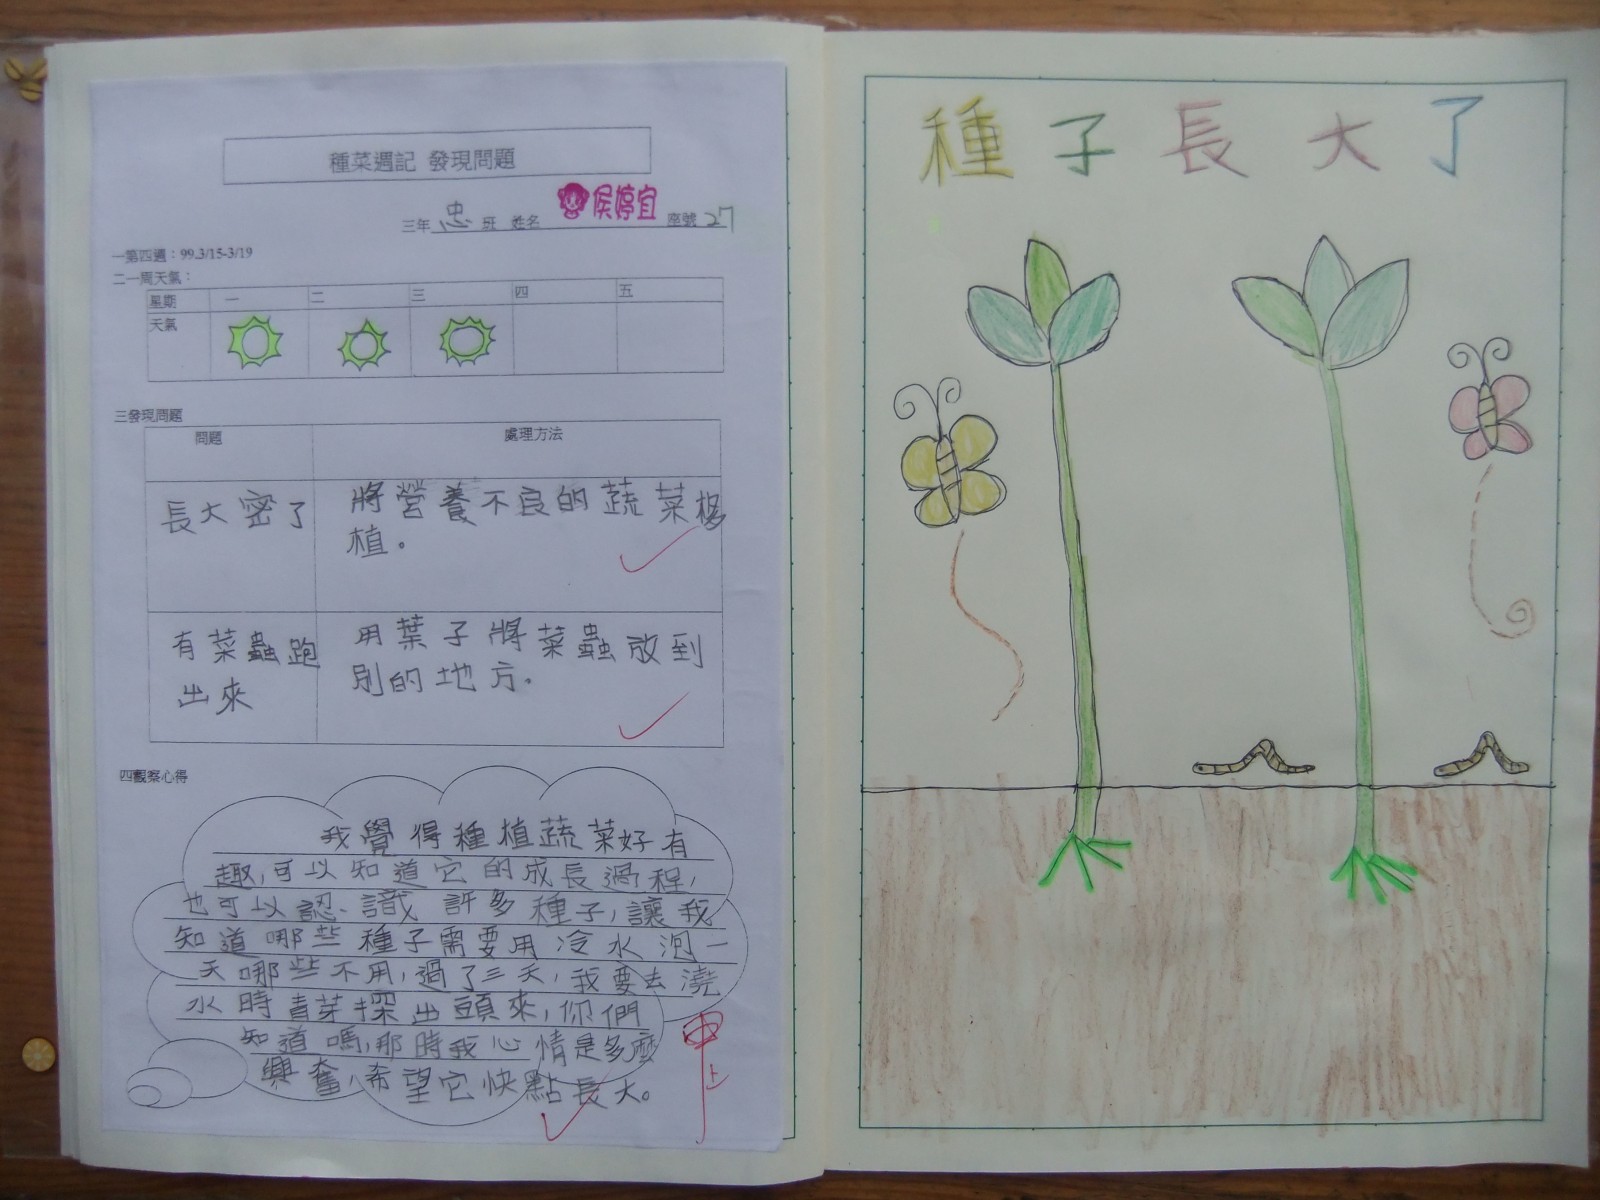 種菜週記 發現問題
三年 忠 班 姓名 侯婷宜 座號 27
一第四週：99.3/15-3/19
二一周天氣：
星期 一 二 三 四 五
天氣
三發現問題
問題 處理方法
長大密了
將營養不良的蔬菜移
植。
有菜蟲跑
出來
用葉子將菜蟲放到
別的地方.
四觀察心得
我覺得種植蔬菜好有
趣,可以知道它的成長過程,
也可以認識許多種子,讓我
知道哪些種子需要用冷水泡一
天哪些不用,過了三天,我要去澆
水時青芽探出頭來,你們
知道嗎,那時我心情是多麼
興奮,希望它快點長大。
種子長大了